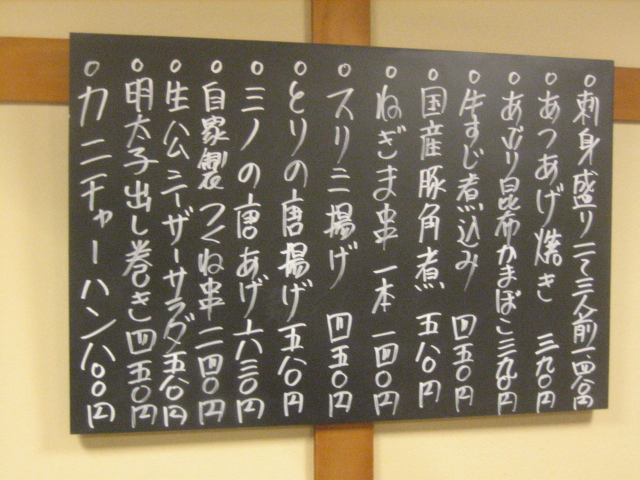 ○刺身盛り二〜三人前一、四八〇円
○あつあげ焼き 三九〇円
○あぶり昆布かまぼこ三九〇円
○牛すじ煮込み 四五〇円
○国産豚角煮 五八〇円
○ねぎま串 一本 一四〇円
○スリニ揚げ 四五〇円
○とりの唐揚げ五八〇円
○ミノの唐あげ六三〇円
○自家製つくね串二四〇円
○生ハムシーザーサラダ五八〇円
○明太子出し巻き四五〇円
○カニチャーハン八〇〇円